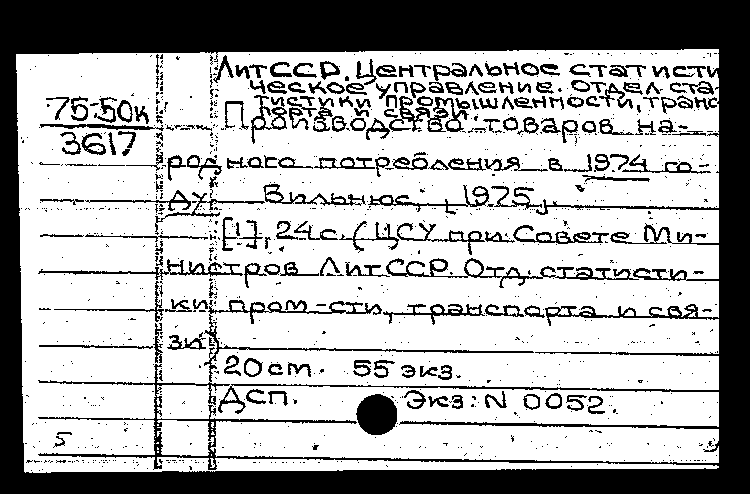 ЛитССР. Центральное статисти
ческое управление. Отдел ста-
тистики промышленности, транс
порта и связи.
75-50к
3617
Производство товаров на-
родного потребления в 1974 го-
ду Вильнюс, [1975].
[1], 24 с. (ЦСУ при Совете Ми-
нистров ЛитССР. Отд. статисти-
ки пром-сти, транспорта и свя-
зи)
20 см. 55 экз.
ДСП. Экз: N 0052.
5